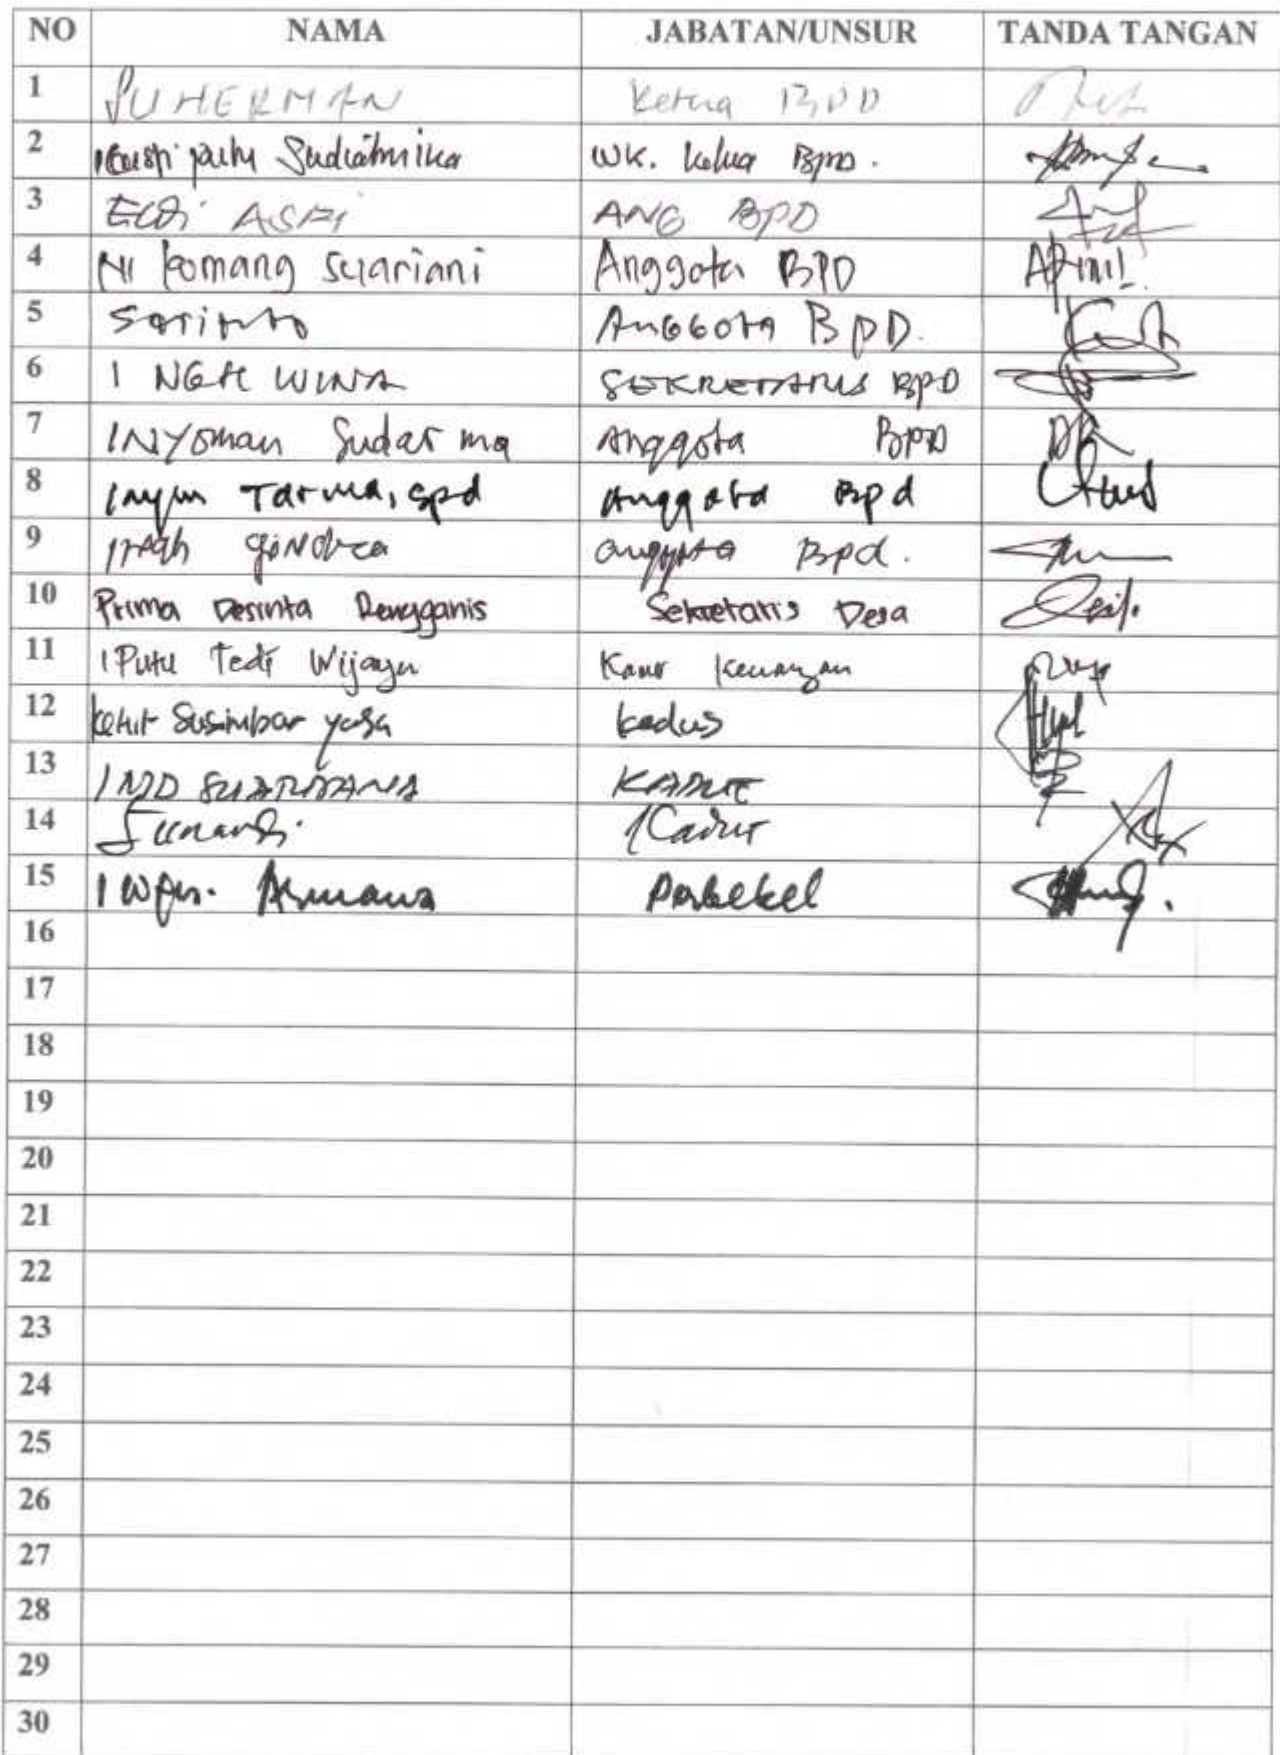 NO NAMA JABATAN/UNSUR TANDA TANGAN
1 SUHERMAN Ketua BPD
2 I Gusti putu Sudiatmika WK. Ketua BPD.
3 ANG BPD
4 Ni komang suariani Anggota BPD
5 Sarinto ANGGOTA BPD.
6 I NGH WINA SEKRETARIS BPD
7 I NYOMAN Sudarma anggota BPD
8 Tarma, spd anggota Bpd
9 anggota Bpd.
10 Prima Desinta Rengganis Sekretaris Desa
11 I Putu Tedi Wijaya Kaur Keuangan
12 Ketut Susimbar yasa kadus
13
14 Sunardi.
15 Perbekel
16
17
18
19
20
21
22
23
24
25
26
27
28
29
30